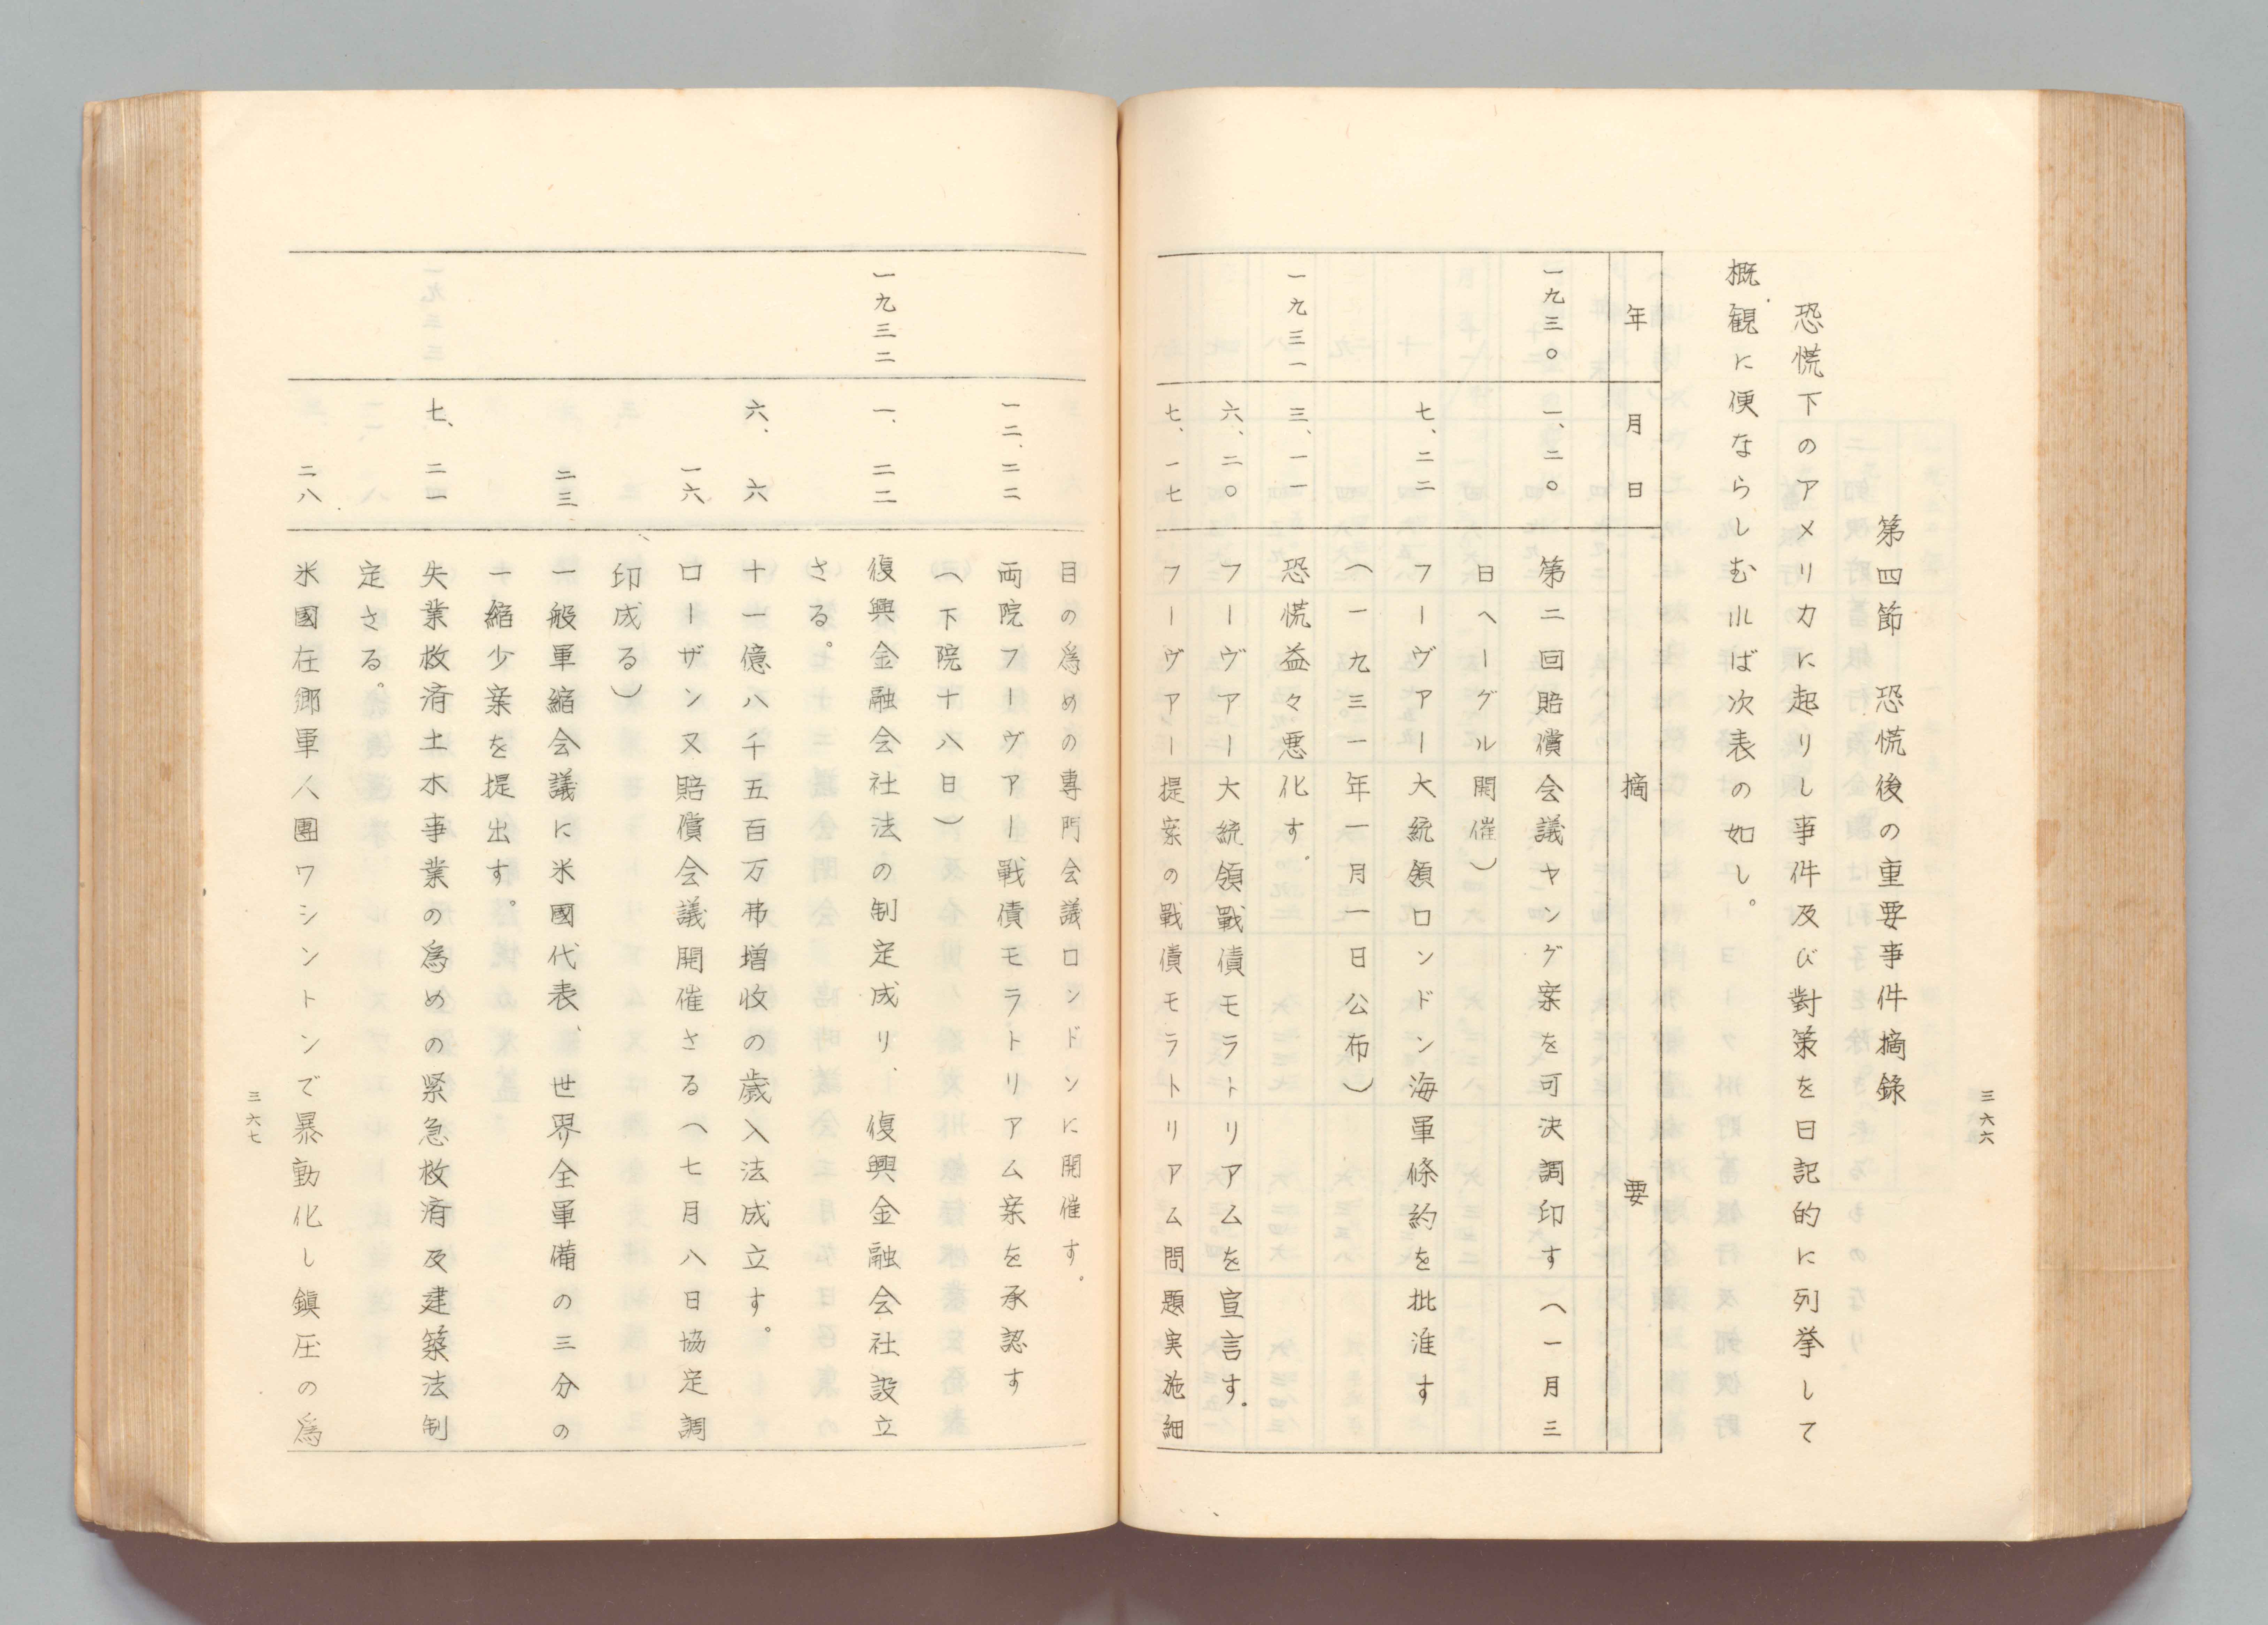 三六六
第四節　恐慌後の重要事件摘錄
恐慌下のアメリカに起りし事件及び對策を日記的に列挙して
概観に便ならしむれば次表の如し。
年　月　日　摘　要
一九三〇　一、二〇　第二回賠償会議ヤング案を可決調印す（一月三
日ヘーグル開催）
七、二二　フーヴァー大統領ロンドン海軍條約を批准す
（一九三一年一月一日公布）
一九三一　三、一一　恐慌益々悪化す.
六、二〇　フーヴァー大統領戰債モラトリアムを宣言す.
七、一七　フーヴァー提案の戰債モラトリアム問題実施細
目の爲めの専門会議ロンドンに開催す.
一二、二二　両院フーヴァー戰債モラトリアム案を承認す
（下院十八日）
一九三二　一、二二　復興金融会社法の制定成り、復興金融会社設立
さる。
六、六　十一億八千五百万弗増收の歳入法成立す。
一六　ローザン又賠償会議開催さる（七月八日協定調
印成る）
二三　一般軍縮会議に米國代表、世界全軍備の三分の
一縮少案を提出す。
七、二一　失業救済土木事業の爲めの緊急救済及建築法制
定さる。
二八　米國在郷軍人團ワシントンで暴動化し鎮圧の爲
三六七